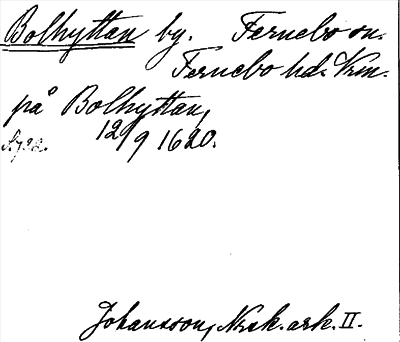 Bolhyttan by. Fernebo sn.
Fernebo hd. Vrm.
på Bolhyttan,
12/9 1620.
Johansson, Nzsk. ark. II.